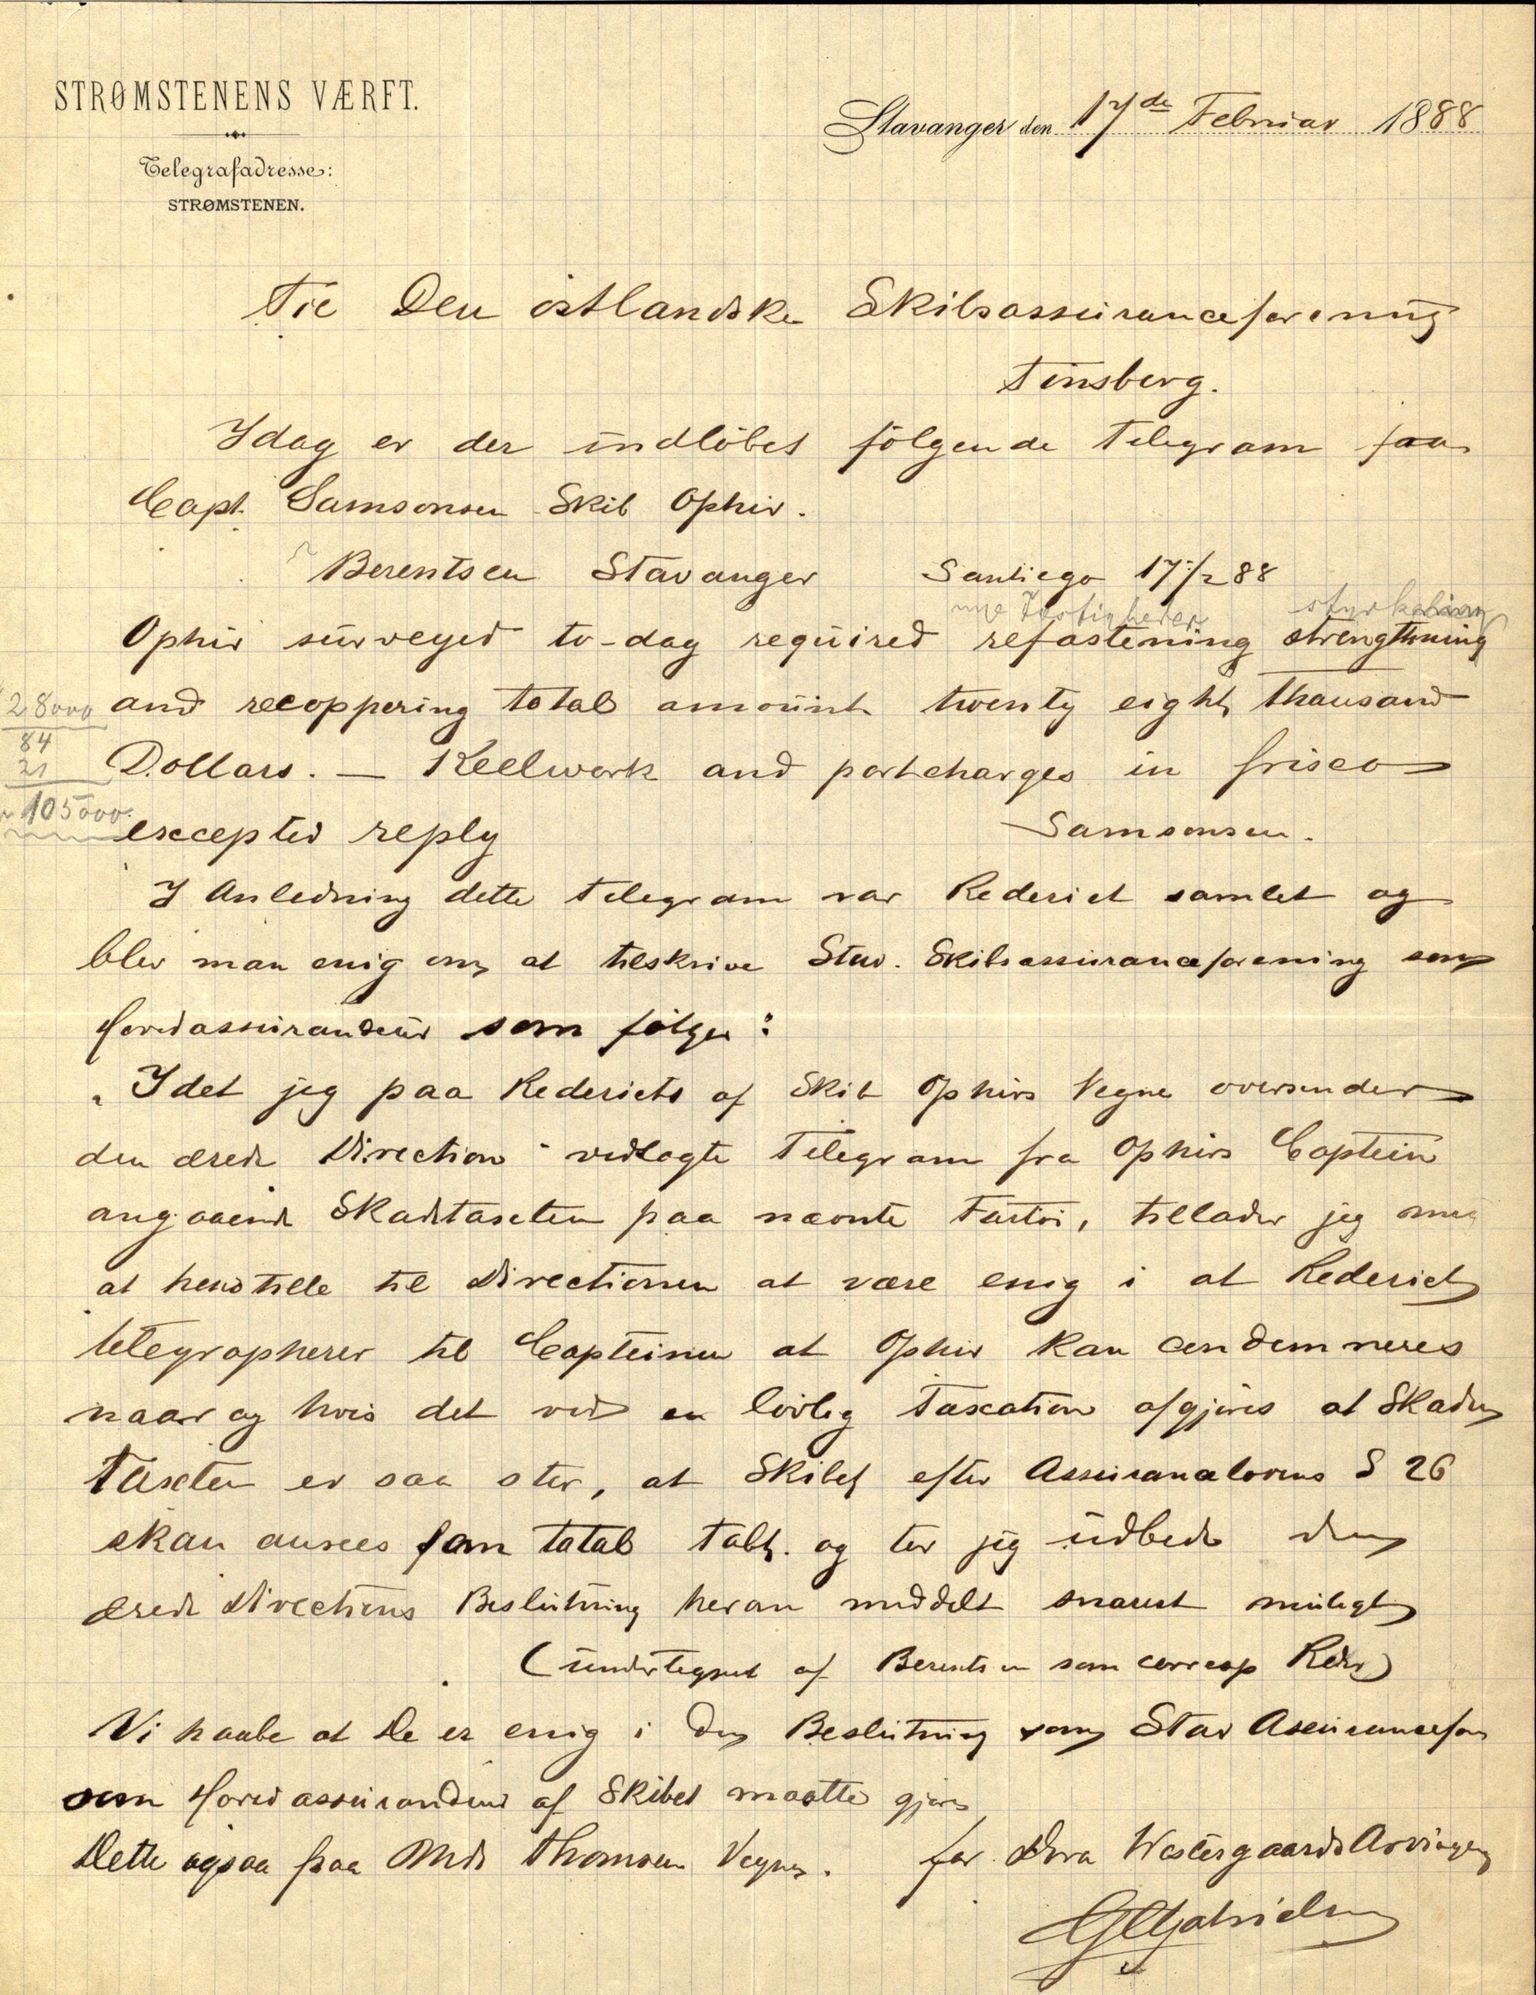 STRØMSTENENS VÆRFT.
Telegrafadresse:
STRØMSTENEN.
Stavanger den 17de Februar 1888
Til Den östlandske Skibsassuranceforening
Tönsberg.
Idag er der indlöbet fölgende Telegram fra
Capt. Samsonsen Skib Ophir.
Berentsen Stavanger Santiego 17/2 88
nye Fastigheder styrkning
Ophir surveyed to-day required refastening strengthning
28000 and recoppering total amount twenty eight thousand
84
21 Dollars. — Keelwork and portcharges in frisco
105000. excepted reply Samsonsen.
I Anledning dette Telegram var Rederiet samlet og
blev man enig om at tilskrive Stav. Skibsassuranceforening som
Hovedassurandeur som fölger:
„Idet jeg paa Rederiets af Skib Ophirs Vegne oversender
den ærede Direction vedlagte Telegram fra Ophirs Captein
angaaende Skadetaxten paa nævnte Fartöi, tillader jeg mig
at henstille til Directionen at være enig i at Rederiet
telegrapherer til Capteinen at Ophir kan condemneres
naar og hvis det ved en lovlig Taxation afgjöres at Skades
Taxten er saa stor, at Skibet efter Assuranceloven § 26
skan ansees som total tabt. og tör jeg udbede den
ærede Directions Beslutning herom meddelt snarest muligt
(undertegnet af Berentsen som corresp Reder)
Vi haabe at De er enig i den Beslutning som Stav Assurancefor
som Hovedassurandeur af Skibet maatte gjöre
Dette ogsaa paa Thomsen Vegne. for Dora Westergaards Arvinger